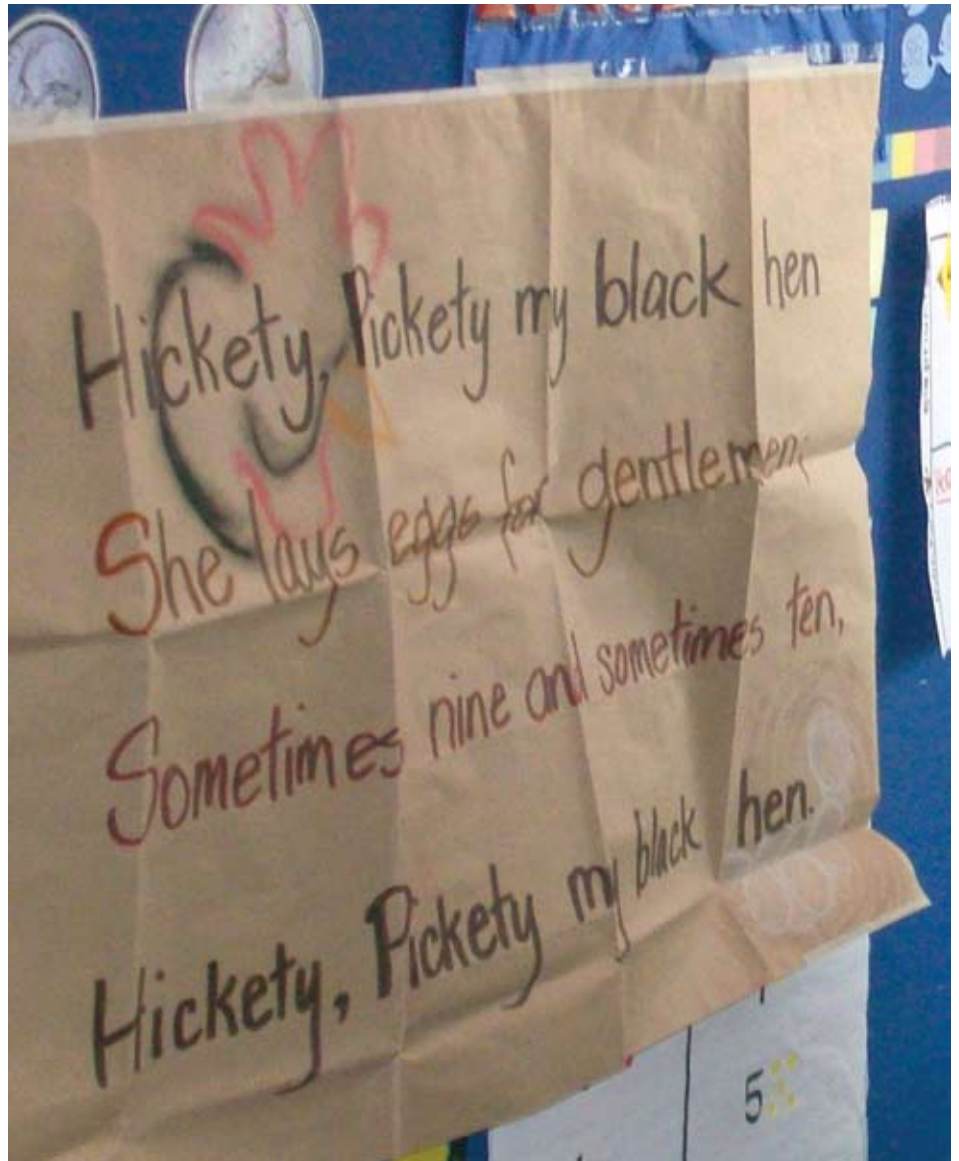 Hickety, Pickety my black hen
She lays eggs for gentlemen;
Sometimes nine and sometimes ten,
Hickety, Pickety my black hen.
5